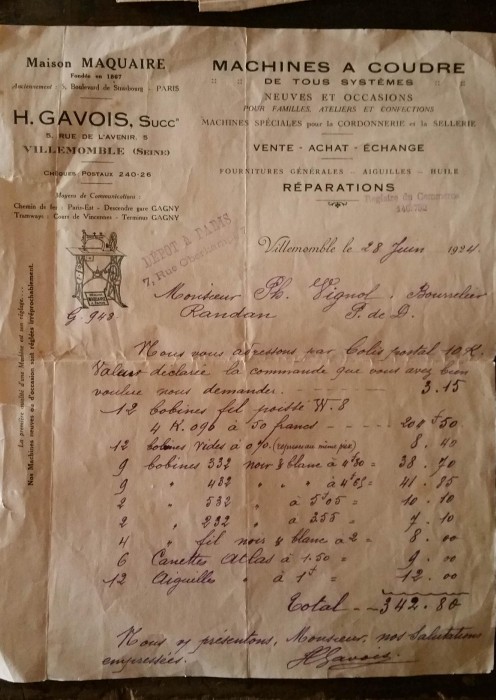 Maison MAQUAIRE
Fondée en 1867
Anciennement : 5, Boulevard de Strasbourg - PARIS
H. GAVOIS, Succr
5, RUE DE L'AVENIR, 5
VILLEMOMBLE (SEINE)
CHÈQUES POSTAUX 240-26
Moyens de Communication :
Chemin de fer : Paris-Est - Descendre gare GAGNY
Tramways : Cours de Vincennes - Terminus GAGNY
MACHINES A COUDRE
DE TOUS SYSTÈMES
NEUVES ET OCCASIONS
POUR FAMILLES, ATELIERS ET CONFECTIONS
MACHINES SPÉCIALES pour la CORDONNERIE et la SELLERIE
VENTE - ACHAT - ÉCHANGE
FOURNITURES GÉNÉRALES - AIGUILLES - HUILE
RÉPARATIONS
Registre du Commerce
DÉPOT A PARIS
7, Rue
La première qualité d'une Machine est son réglage...
Nos Machines neuves ou d'occasion sont réglées irréprochablement.
Villemomble le 28 Juin 1924.
Monsieur Ph. Vignol. Bourrelier
G 948 Randan P. de D.
Nous vous adressons par Colis postal 10 K.
Valeur déclarée la commande que vous avez bien
voulu nous demander. 3.15
12 bobines fil poissé W.8
4 K. 096 à 50 francs - 50
12 bobines vides à 0,70. 8.40
9 bobines 332 noir & blanc à 4f30 = 38.70
9 " 432 " " à 4f65 = 41.85
2 " 532 " à 5f05 = 10.10
2 " 232 " à 355 = 7.10
4 " fil noir & blanc à 2 = 8.00
6 Canettes Atlas à 1.50 = 9.00
12 Aiguelles " à 1f = 12.00
Total - 342.80
Nous vs présentons, Monsieur, nos Salutations
empressées. HGavois